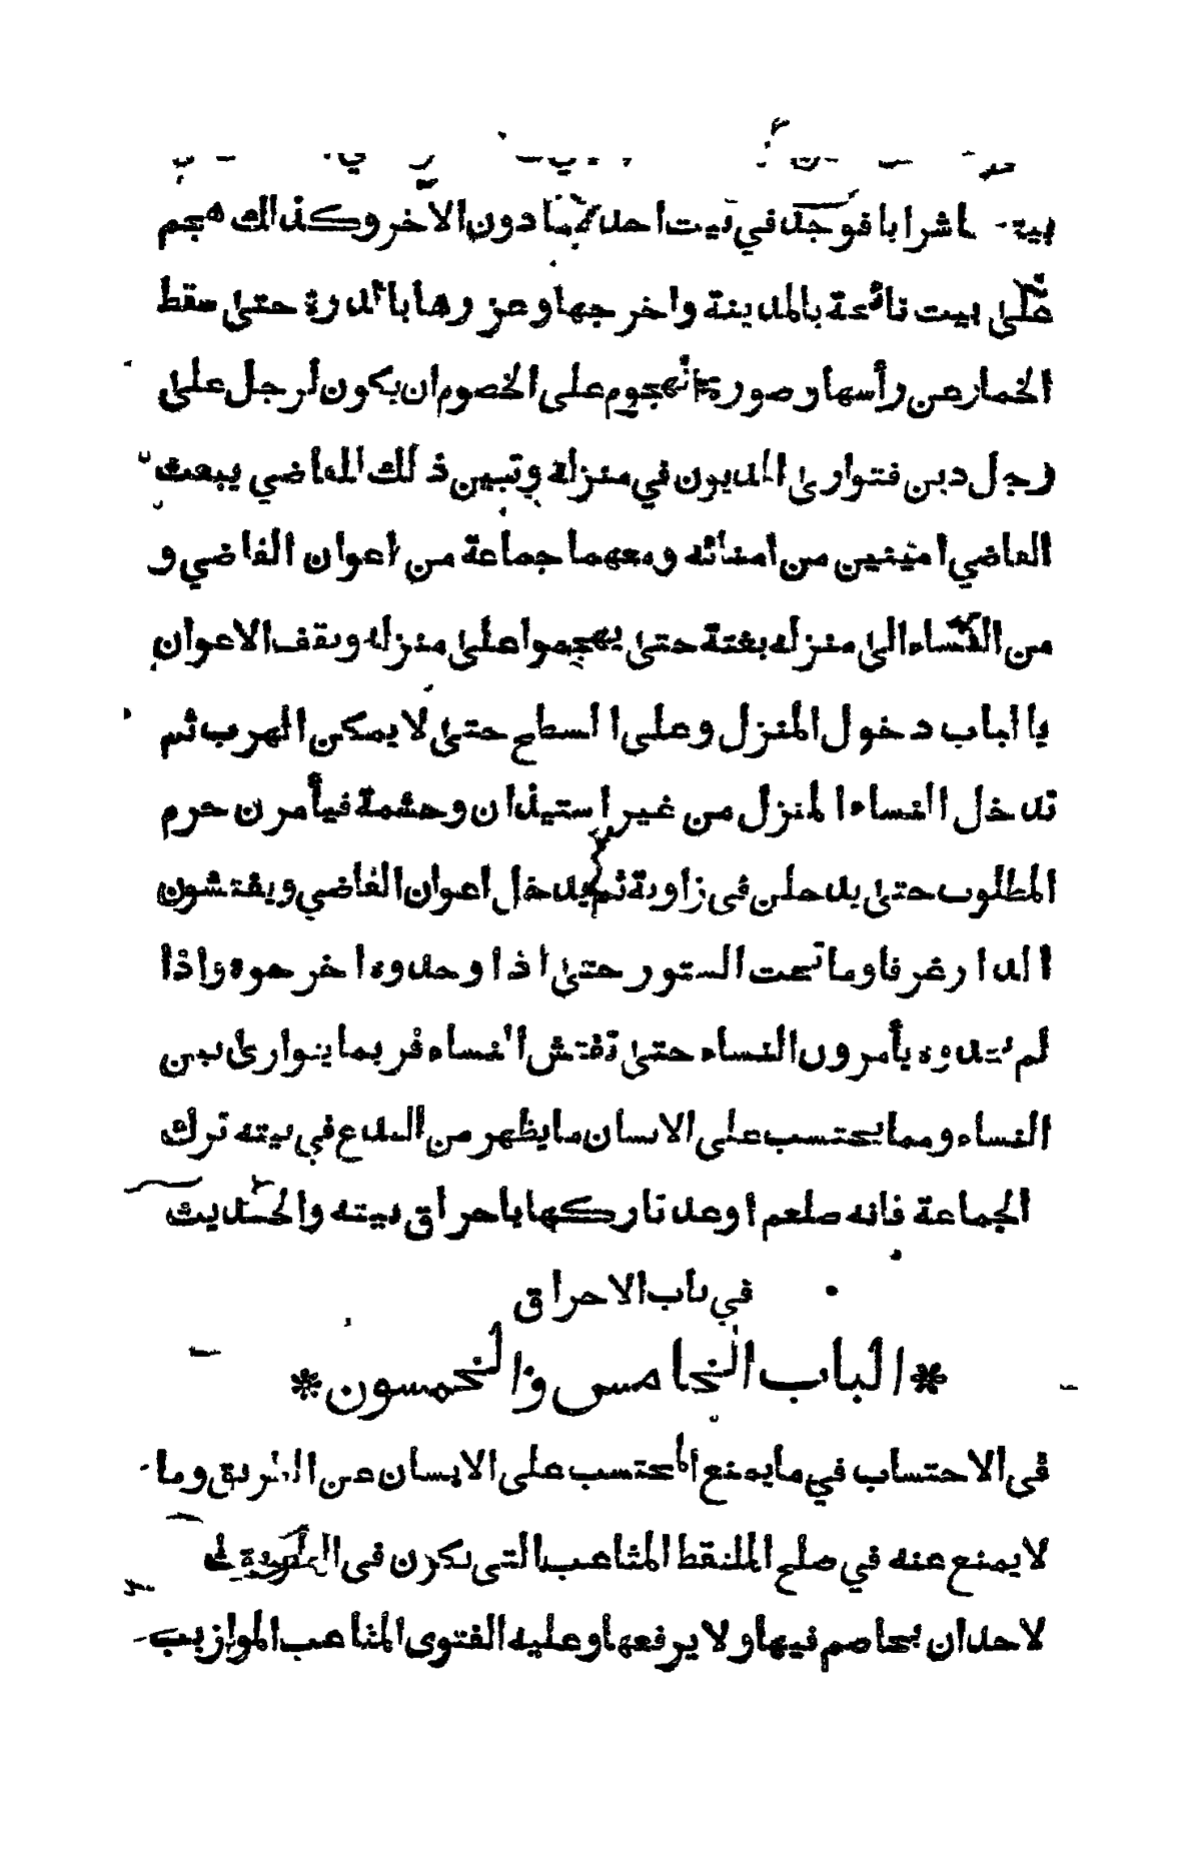 شرابا فوجد في بيت احدهما دون الاخر وكذالك هجم
على بيت نائحة بالمدينة واخرجها وعزرها بالدرة حتى سقط
الخمار عن رأسها وصورة الهجوم على الخصوم ان يكون لرجل على
رجل دين فتوارى المديون في منزله وتبين ذلك للقاضي يبعث
القاضي امينين من امنائه ومعهما جماعة من اعوان القاضي و
من النساء الى منزله بغتة حتى يهجموا على منزله ويقف الاعوان
بالباب دخول المنزل وعلى السطح حتى لا يمكن الهرب ثم
تدخل النساء المنزل من غير استيذان وحشمة فيأمرن حرم
المطلوب حتى يدخلن فى زاوية ثم يدخل اعوان القاضي ويفتشون
الدار غرفا وما تحت الستور حتى اذا وجدوه اخرجوه واذا
لم يجدوه يأمرون النساء حتى تفتش النساء فربما يتوارى بين
النساء ومما يحتسب على الانسان ما يظهر من البدع في بيته ترك
الجماعة فانه صلعم اوعد تاركها باحراق بيته والحديث
في باب الاحراق
*الباب الخامس والخمسون*
فى الاحتساب في ما يمنع المحتسب على الانسان عن الطريق وما
لا يمنع عنه في صلح الملتقط المثاعب التى يكون فى
لاحد ان يخاصم فيها ولا يرفعها وعليه الفتوى المثاعب الموازيب